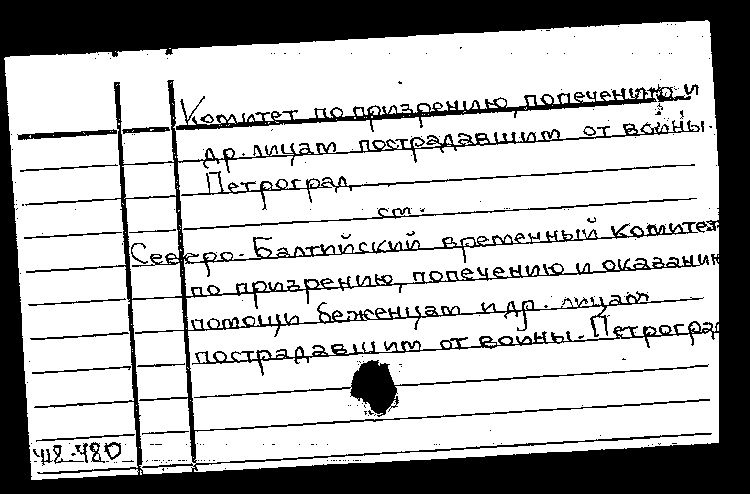 Комитет по призрению, попечению и
др. лицам пострадавшим от войны.
Петроград
см.
Северо-Балтийский временный комитет
по призрению, попечению и оказанию
помощи беженцам и др. лицам
пострадавшим от войны. Петроград
418-480